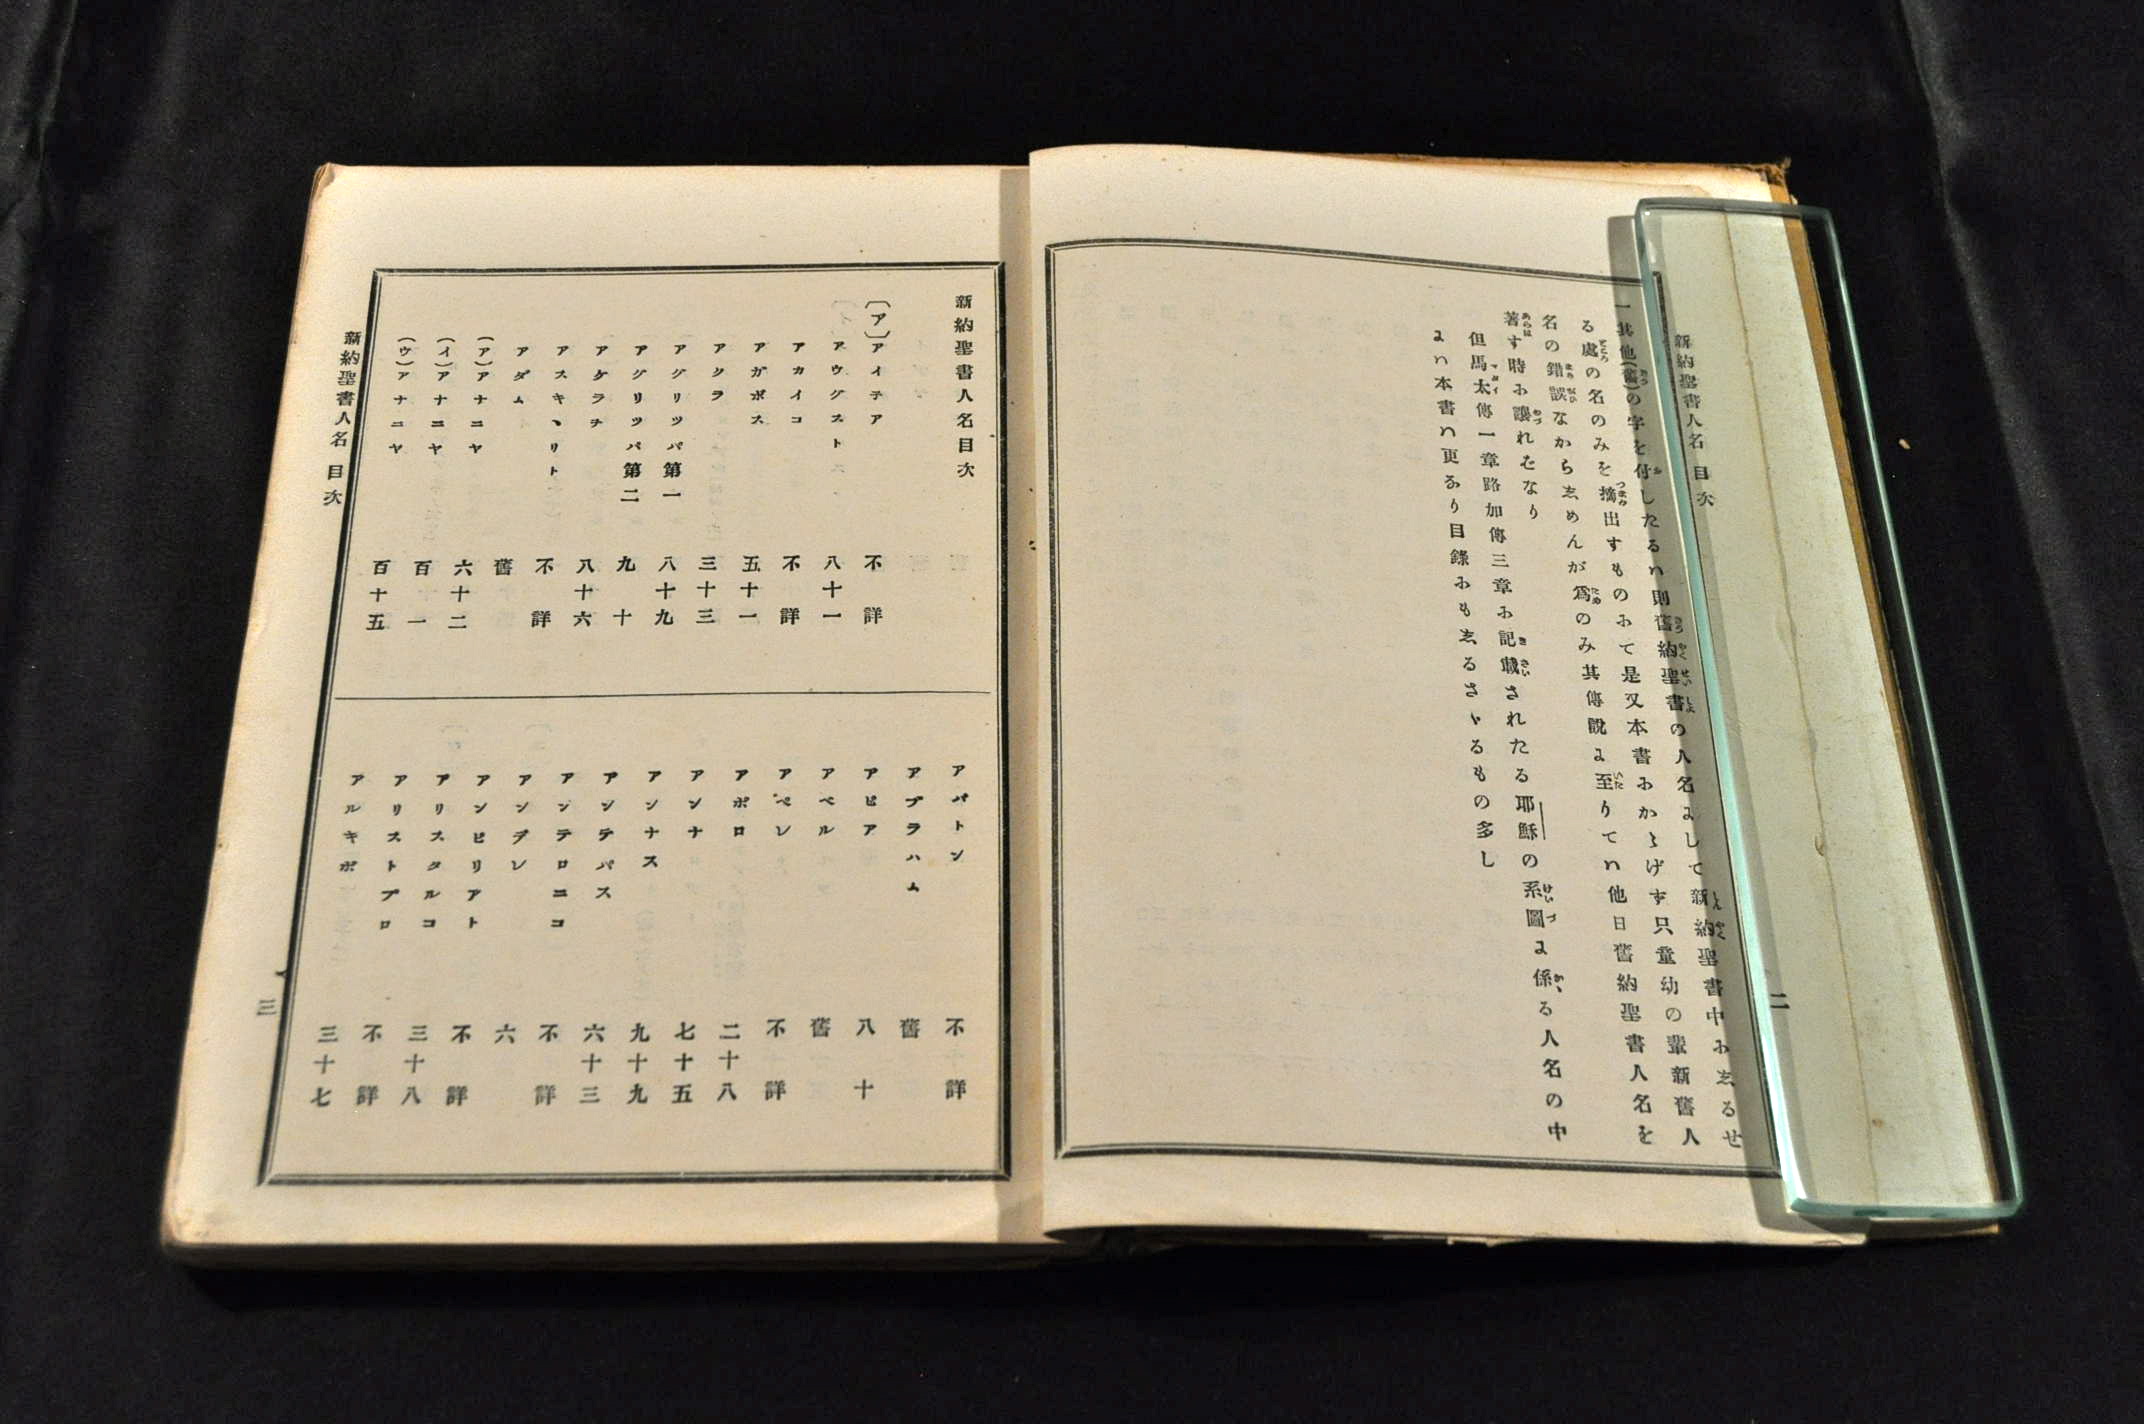 新約聖書人名 目次
二
一其他(舊)の字を付したるハ則舊約聖書の人名よして新約聖書中ぉゑるせ
る處の名のみを摘出すものぉて是又本書ぉかゝげす只童幼の輩新舊人
名の錯誤なからゑめんが爲のみ其傳說よ至りてハ他日舊約聖書人名を
著す時ぉ讓れむなり
但馬太傳一章路加傳三章ぉ記載されたる耶穌の系圖よ係る人名の中
よハ本書ハ更なり目錄ぉもゑるさゝるもの多し
新約聖書人名目次
〔ア〕
アイテア 不詳
アウグスト 八十一
アカイコ 不詳
アガボス 五十一
アクラ 三十三
アグリツパ第一 八十九
アグリツパ第二 九十
アケラヲ 八十六
アスキヽリト 不詳
アダム 舊
(ア)アナニヤ 六十二
(イ)アナニヤ 百十一
(ウ)アナニヤ 百十五
アバトン 不詳
アブラハム 舊
アビア 八十
アベル 舊
アペレ 不詳
アポロ 二十八
アンナ 七十五
アンナス 九十九
アンテパス 六十三
アンテロニコ 不詳
アンデレ 六
アンピリアト 不詳
アリスタルコ 三十八
アリストブロ 不詳
アルキポ 三十七
新約聖書人名 目次
三